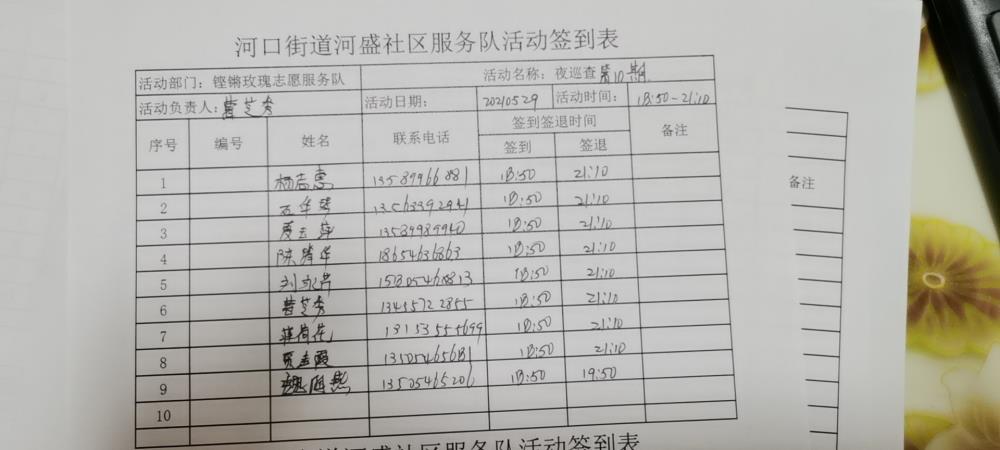 河口街道河盛社区服务队活动签到表
活动部门：铿锵玫瑰志愿服务队 活动名称：夜巡查第10期
活动负责人： 活动日期： 20210529 活动时间： 18:50-21:10
序号 编号 姓名 联系电话 签到签退时间 备注
签到 签退
1 杨志惠 13589966881 18:50 21:10
2 13563392941 18:50 21:10
3 13589989940 18:50 21:10
4 18654636863 18:50 21:10
5 18:50 21:10
6 13455722855 18:50 21:10
7 18153555699 18:50 21:10
8 13505465681 18:50 21:10
9 13505465206 18:50 19:50
10
备注
河盛社区服务队活动签到表